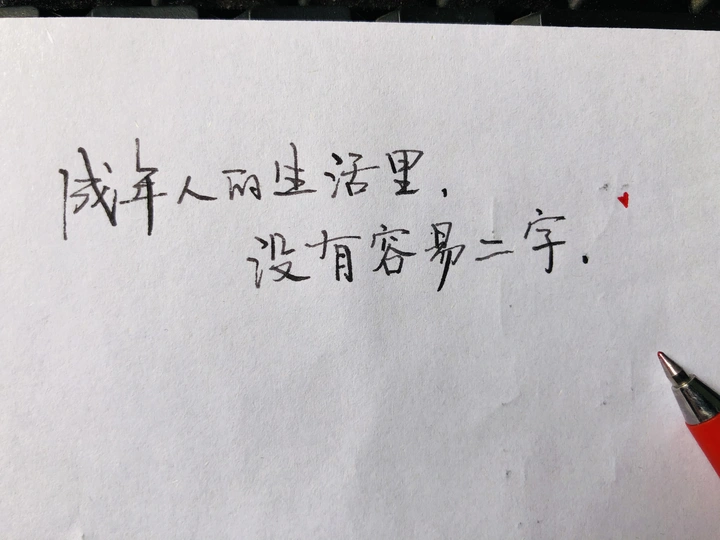 成年人的生活里.
没有容易二字.